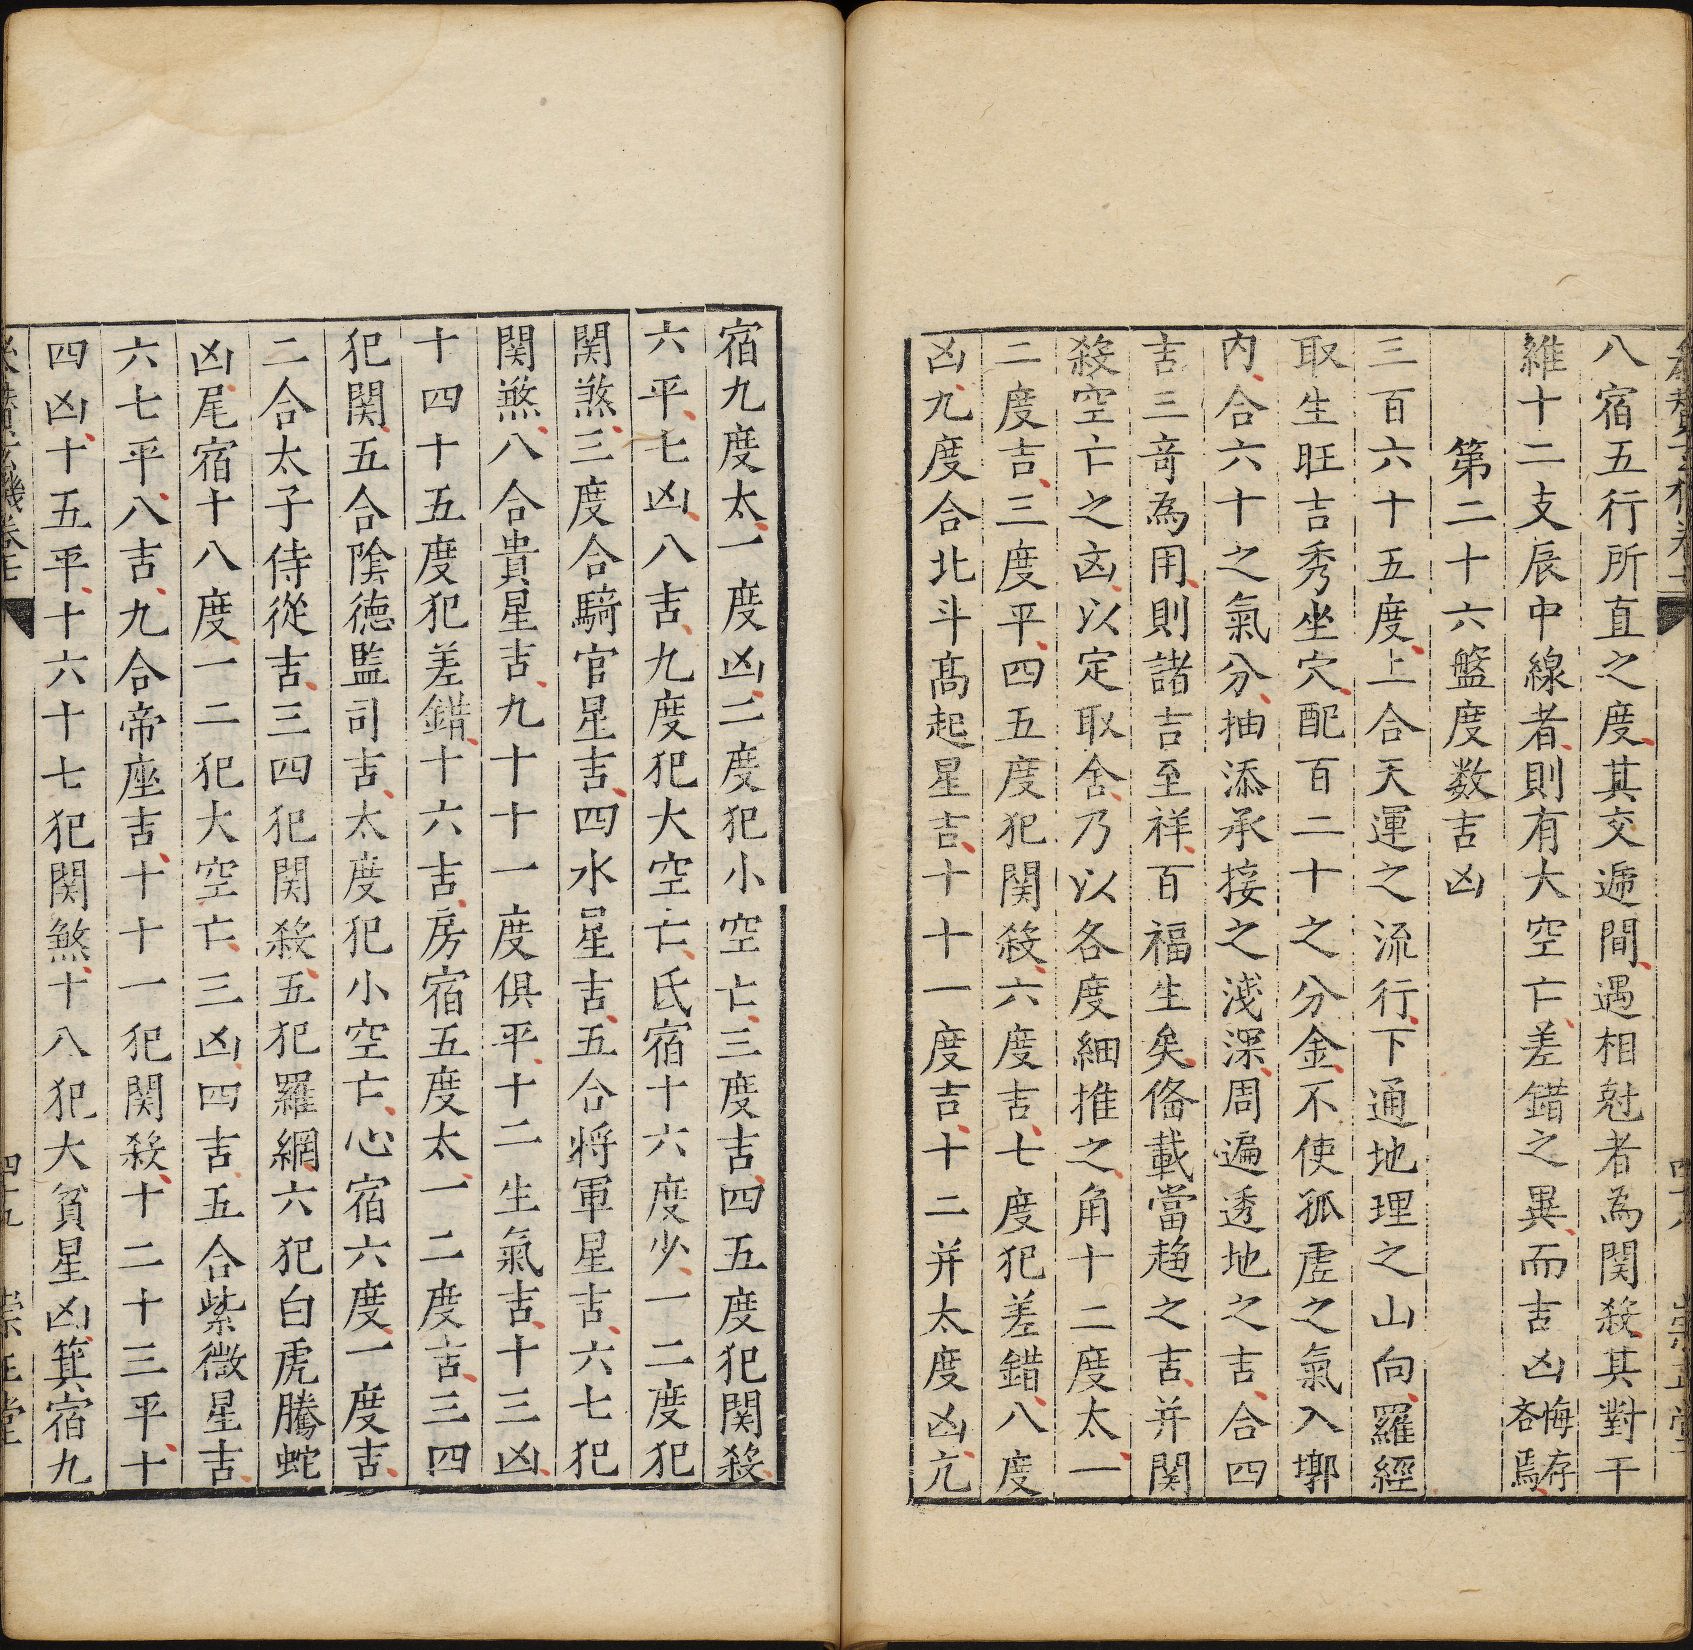 八宿五行所直之度其交遞間遇相尅者為関殺其對干
維十二支辰中線者則有大空亡差錯之異而吉凶悔吝存焉
第二十六盤度数吉凶
三百六十五度上合天運之流行下通地理之山向羅經
取生旺吉秀坐穴配百二十之分金不使孤虛之氣入墎
内合六十之氣分抽添承接之淺深周遍透地之吉合四
吉三竒為用則諸吉至祥百福生矣俻載當趋之吉并関
殺空亡之凶以定取舍乃以各度細推之角十二度太一
二度吉三度平四五度犯関殺六度吉七度犯差錯八度
凶九度合北斗髙起星吉十十一度吉十二并太度凶亢
宿九度太一度凶二度犯小空亡三度吉四五度犯関殺
六平七凶八吉九度犯大空亡氐宿十六度少一二度犯
関煞三度合騎官星吉四水星吉五合将軍星吉六七犯
関煞八合貴星吉九十十一度俱平十二生氣吉十三凶
十四十五度犯差錯十六吉房宿五度太一二度吉三四
犯関五合隂德監司吉太度犯小空亡心宿六度一度吉
二合太子侍從吉三四犯関殺五犯羅網六犯白虎騰蛇
凶尾宿十八度一二犯大空亡三凶四吉五合紫微星吉
六七平八吉九合帝座吉十十一犯関殺十二十三平十
四凶十五平十六十七犯関煞十八犯大貧星凶箕宿九
四十九 崇正堂